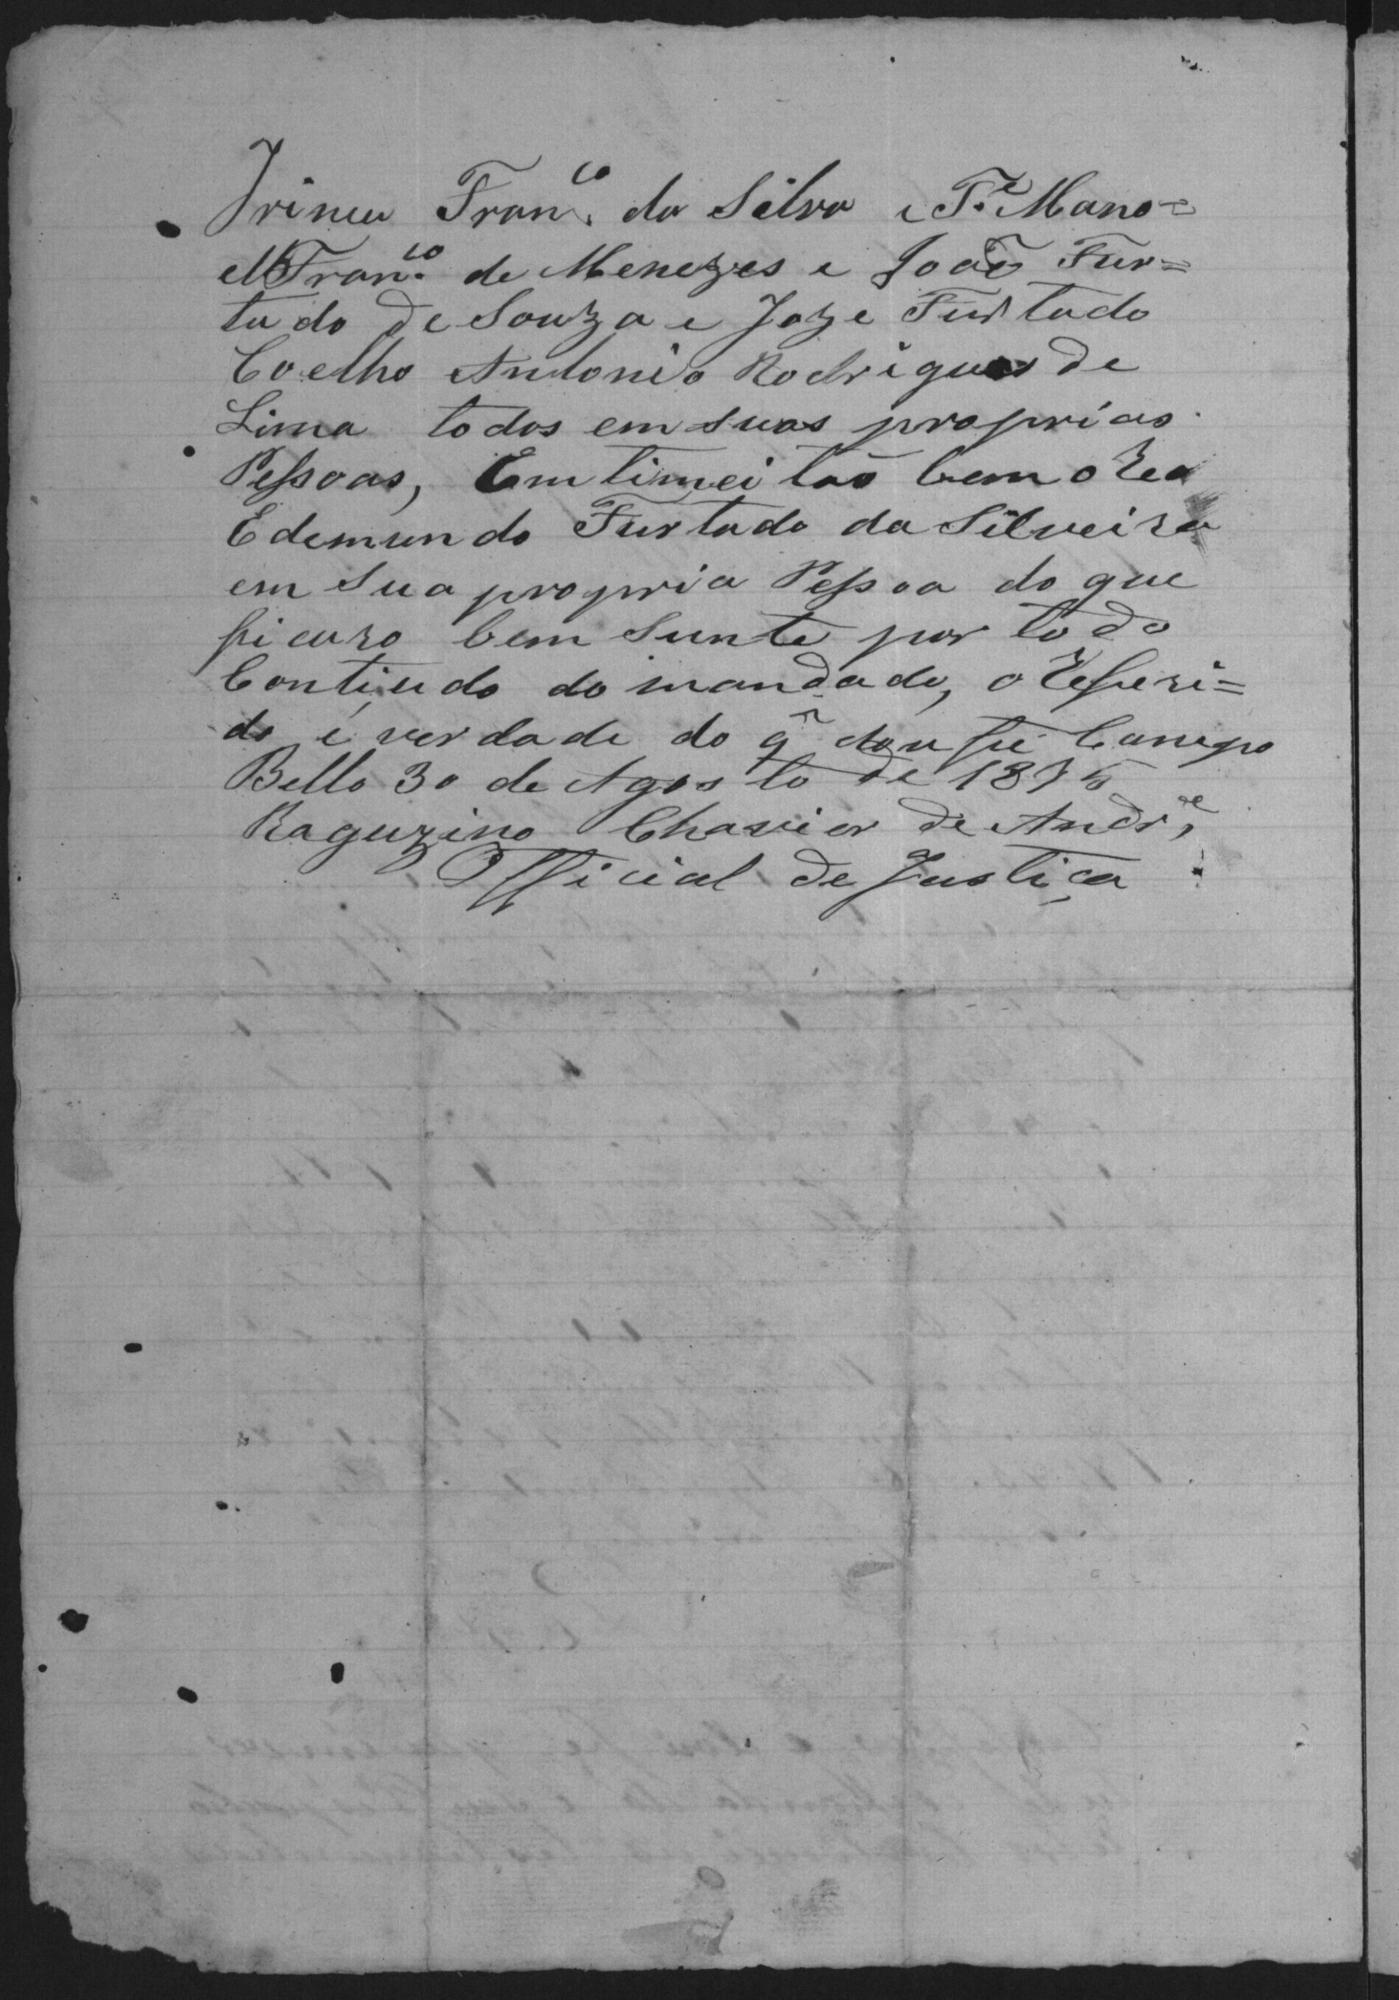 Irineu Fran.co da Silva e T.e Mano=
el Fran.co de Menezes e João Fur=
tado de Souza e Joze Furtado
Coelho Antonio Rodrigues de
Lima todos em suas proprias
Pessoas, Emtimei tão bem o Reo
Edemundo Furtado da Silveira
em Sua propria Pessoa do que
ficaro bem Siente por todo
Contiudo do mandado, o Referi=
do é verdade do q~ dou fé Campo
Bello 30 de Agosto de 1875
Raguzino Chavier de Andr.e
Official de Justiça